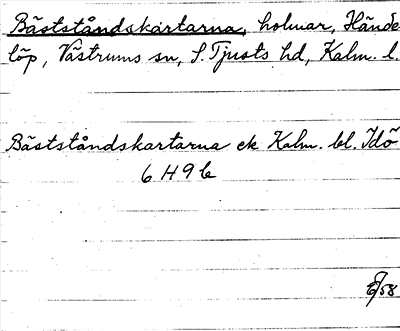 Bästståndskartarna, holmar, Hände-
löp, Västrums sn, S. Tjusts hd, Kalm. l.
Bästståndskartarna ek Kalm. bl. Idö
6 H 9 b